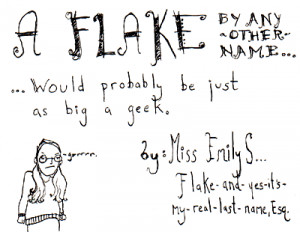 A FLAKE BY ANY
~OTHER~
NAME...
... Would probably be just
as big a geek.
~grrrrr.
by: Miss Emily S...
Flake-and-yes-it's-
my-real-last-name, Esq.